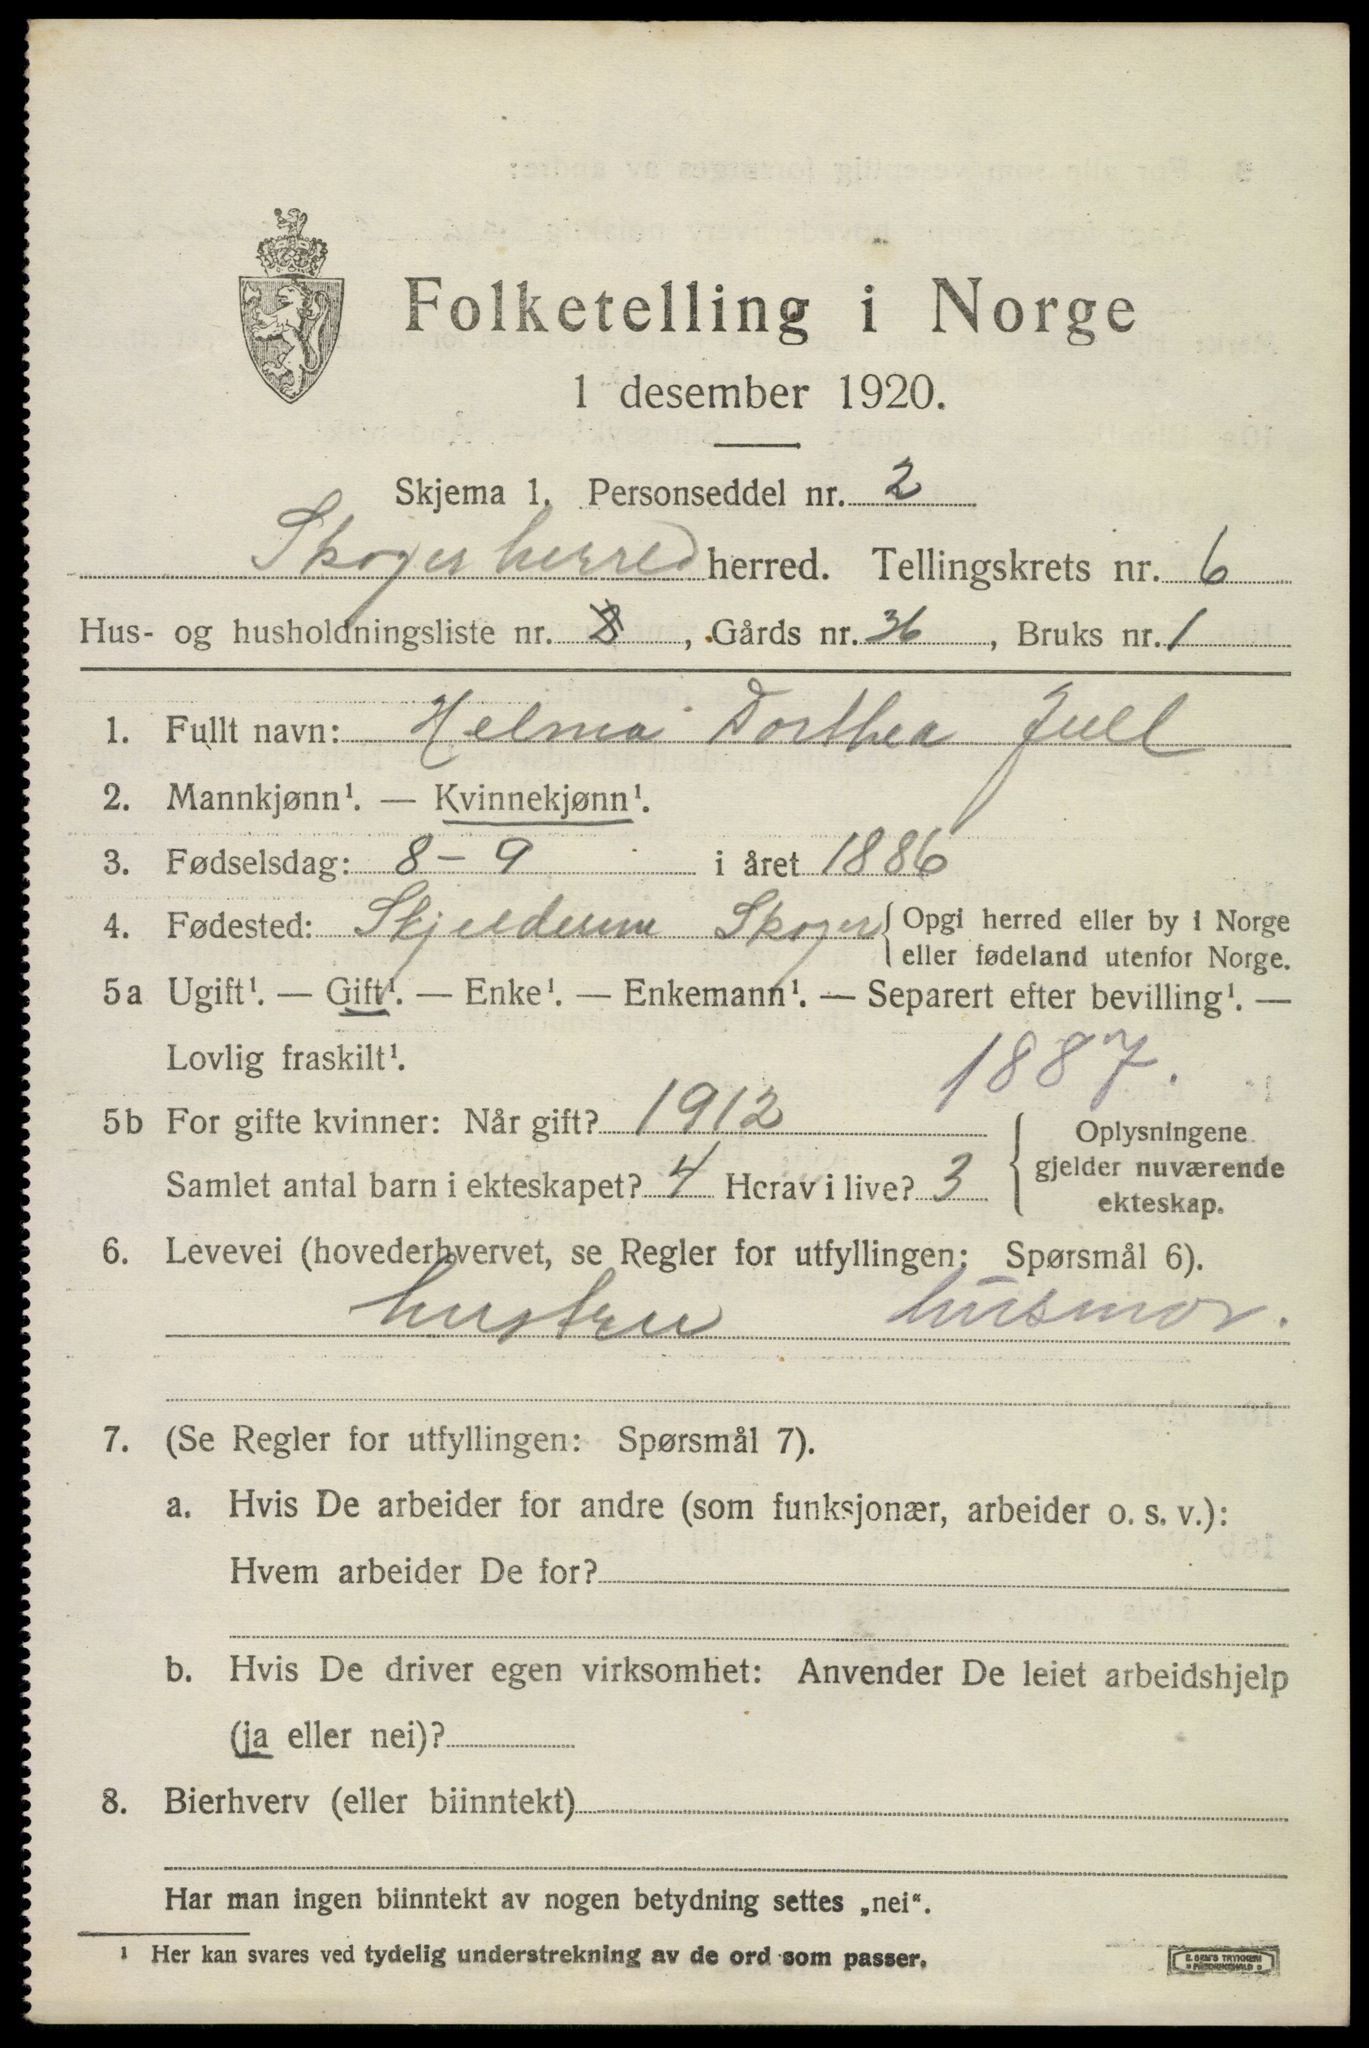 Folketelling i Norge
1 desember 1920.
Skjema 1. Personseddel nr. 2
Skoger herred herred. Tellingskrets nr. 6
Hus- og husholdningsliste nr. 8, Gårds nr. 36, Bruks nr. 1
1. Fullt navn: Helma Dorthea Juell
2. Mannkjønn¹. — Kvinnekjønn¹.
3. Fødselsdag: 8-9 i året 1886
4. Fødested: Skjelderum Skoger { Opgi herred eller by i Norge
eller fødeland utenfor Norge.
5a Ugift¹. — Gift¹. — Enke¹. — Enkemann¹. — Separert efter bevilling¹. —
Lovlig fraskilt¹. 1887.
5b For gifte kvinner: Når gift? 1912
Samlet antal barn i ekteskapet? 4 Herav i live? 3
{ Oplysningene
gjelder nuværende
ekteskap.
6. Levevei (hovederhvervet, se Regler for utfyllingen: Spørsmål 6).
hustru husmor.
7. (Se Regler for utfyllingen: Spørsmål 7).
a. Hvis De arbeider for andre (som funksjonær, arbeider o. s. v.):
Hvem arbeider De for?
b. Hvis De driver egen virksomhet: Anvender De leiet arbeidshjelp
(ja eller nei)?
8. Bierhverv (eller biinntekt)
Har man ingen biinntekt av nogen betydning settes „nei“.
¹ Her kan svares ved tydelig understrekning av de ord som passer.